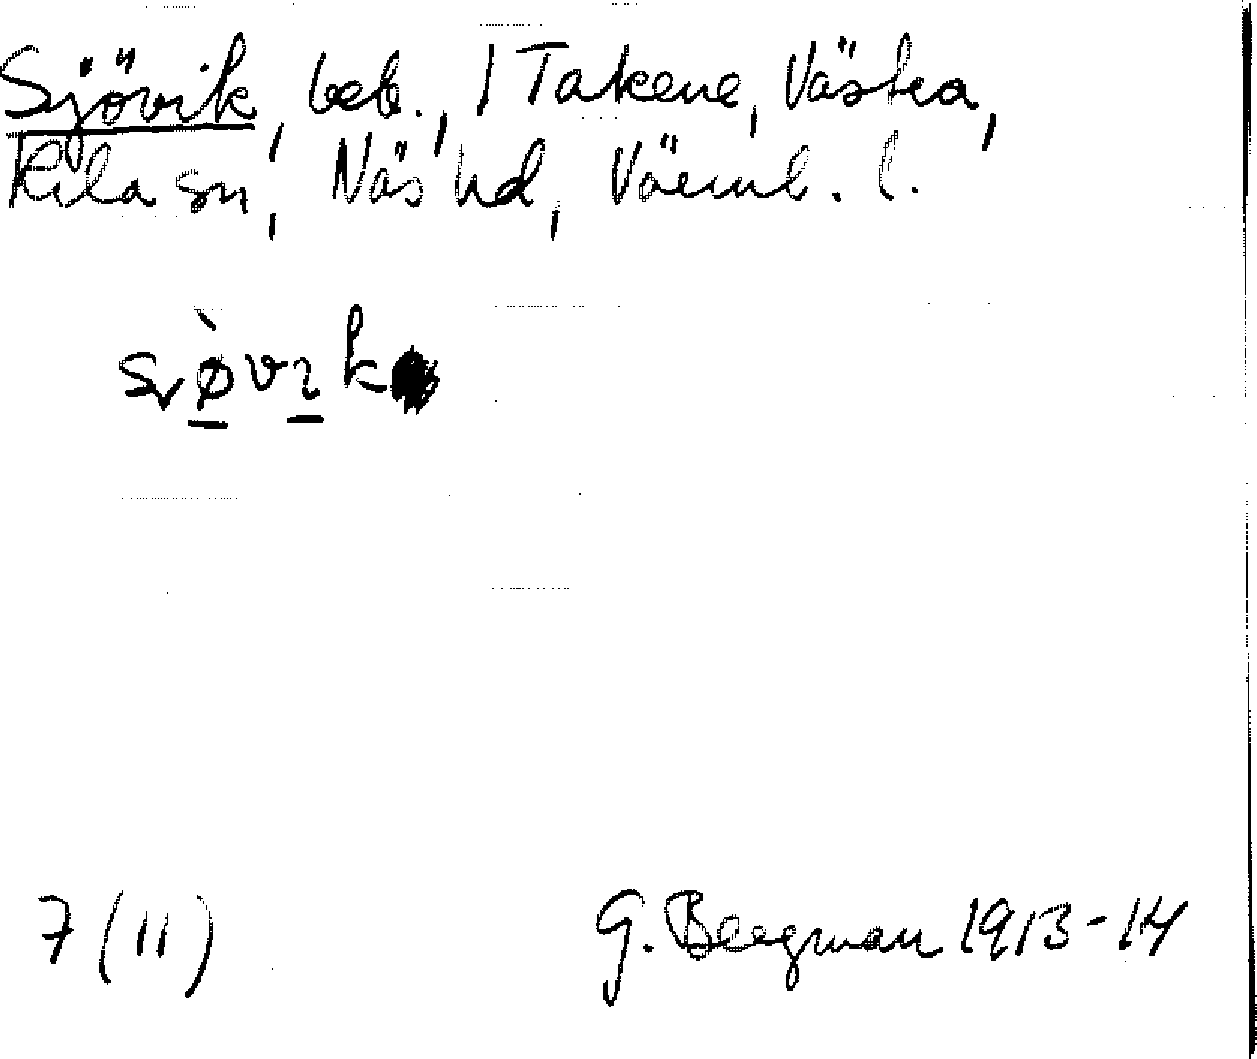 Sjövik, beb., 1 Takene, Västra,
Kila sn, Näs hd, Värml. l.
sv̀øvık
7 (11)
G. Bergman 1913-14